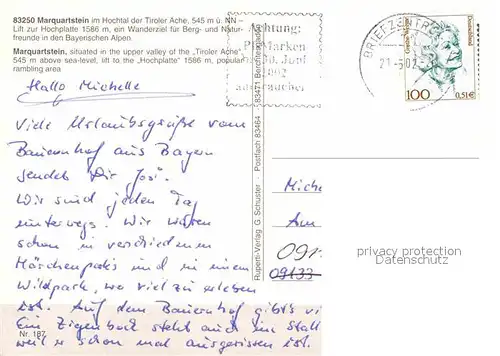 83250 Marquartstein im Hochtal der Tiroler Ache, 545 m ü. NN –
Lift zur Hochplatte 1586 m, ein Wanderziel für Berg- und Natur-
freunde in den Bayerischen Alpen.
Marquartstein, situated in the upper valley of the „Tiroler Ache“,
545 m above sea-level, lift to the „Hochplatte“ 1586 m, popular
rambling area
Hallo Michelle
Viele Urlaubsgrüße vom
Bauernhof aus Bayern
sendet Dir
Wir sind jeden Tag
unterwegs. Wir waren
schon in verschiedenen
Märchenparks und in einem
Wildpark, wo viel zu erleben
ist. Auf dem Bauernhof gibt's vi
Ein Ziegenbock steht auch im Stall
weil er schon mal ausgerissen ist.
Nr. 187
Ruperti-Verlag G. Schuster · Postfach 83464 · 83471 Berchtesgaden
Achtung:
Marken
30. Juni
2002
BRIEFZENTRUM
Deutschland
100
0,51€
Miche
Am
091
09133
privacy protection
Datenschutz